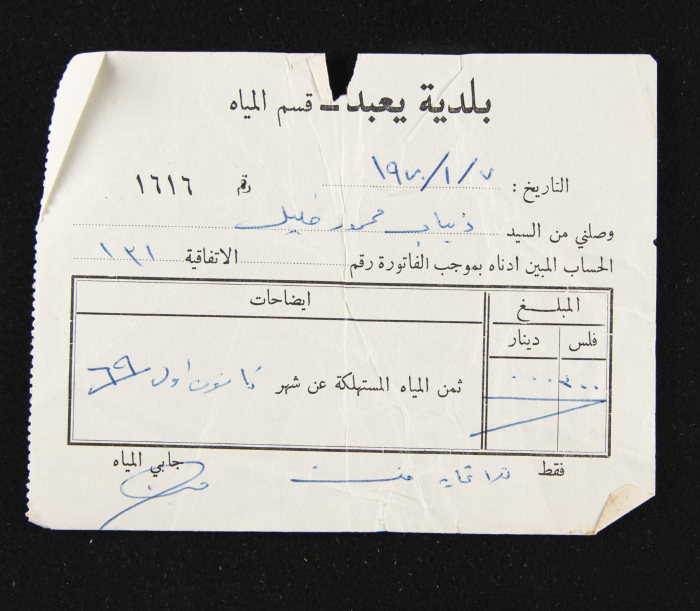 بلدية يعبد ـ قسم المياه
التاريخ : ١٩٧٠/١/٧ رقم ١٦١٦
وصلني من السيد ذياب محمود خليل
الحساب المبين ادناه بموجب الفاتورة رقم الاتفاقية ١٣١
المبلغ ايضاحات
فلس دينار
٣٠٠ ٠٠٠ ثمن المياه المستهلكة عن شهر كانون اول ٦٩
فقط ثلاثماية فلس جابي المياه